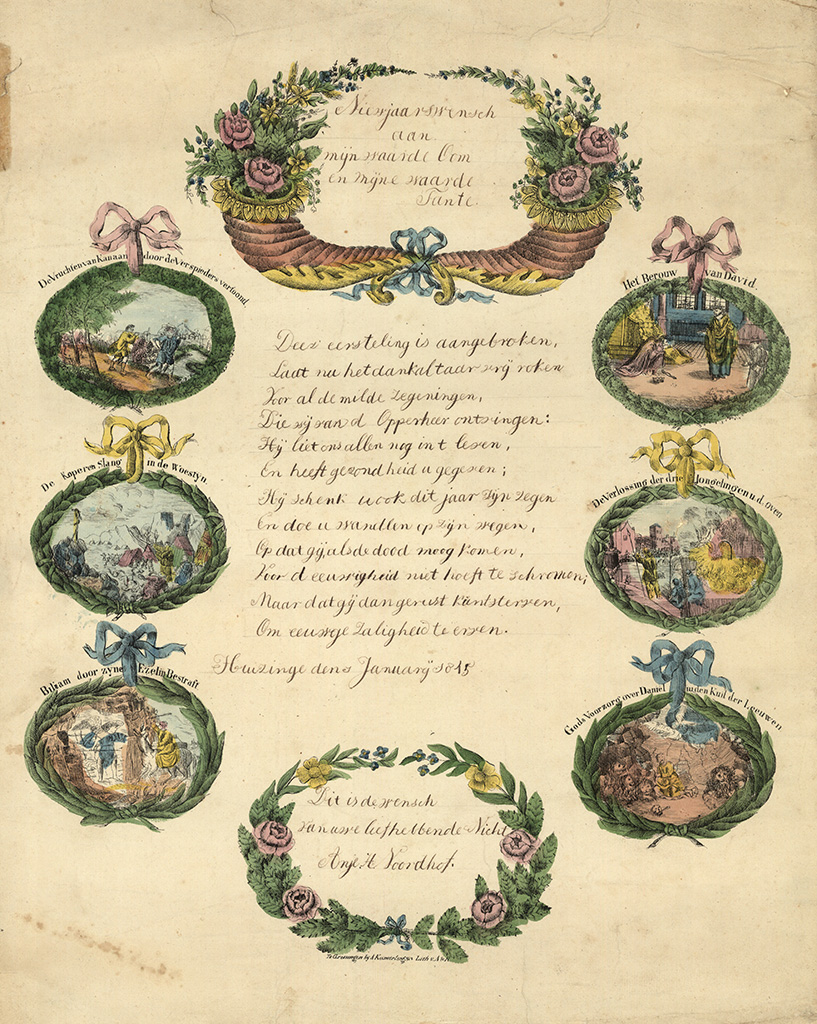 Nieuwjaarswensch
aan
mijn waarde Oom
en mijne waarde
Tante.
De Vruchten van Kanaan door de Verspieders vertoond.
Het Berouw van David.
De Koperen Slang in de Woestyn.
De Verlossing der drie Jongelingen u.d. oven
Biliam door zyne Ezelin Bestraft
Gods Voorzorg over Daniel in den Kuil der Leeuwen
Deez' eersteling is aangebroken,
Laat nu het dankaltaar vrij roken
Voor al de milde zegeningen,
Die wij van d' Opperheer ontvingen:
Hij liet ons allen nog in 't leven,
En heeft gezondheid u gegeven;
Hij schenk' u ook dit jaar zijn zegen
En doe u wandlen op zijn wegen,
Opdat gij, als de dood moog komen,
Voor d' eeuwigheid niet hoeft te schromen;
Maar dat gij dan gerust kunt sterven,
Om eeuwge zaligheid te erven.
Huizinge den Januarij
Dit is de wensch
van uwe liefhebbende Nicht
Anje H. Voordhof.
Te Groningen by